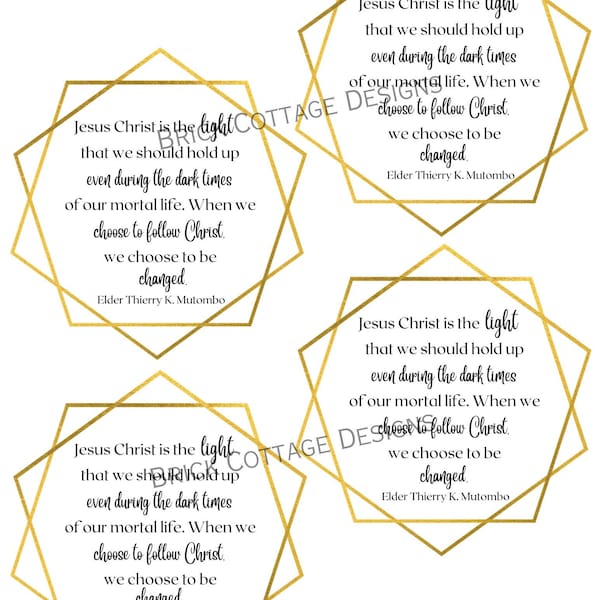 Jesus Christ is the light
that we should hold up
even during the dark times
of our mortal life. When we
choose to follow Christ,
we choose to be
changed.
Elder Thierry K. Mutombo
Jesus Christ is the light
that we should hold up
even during the dark times
of our mortal life. When we
choose to follow Christ,
we choose to be
changed.
Elder Thierry K. Mutombo
Brick Cottage Designs
Jesus Christ is the light
that we should hold up
even during the dark times
of our mortal life. When we
choose to follow Christ,
we choose to be
changed.
Jesus Christ is the light
that we should hold up
even during the dark times
of our mortal life. When we
choose to follow Christ,
we choose to be
changed.
Elder Thierry K. Mutombo
Brick Cottage Designs